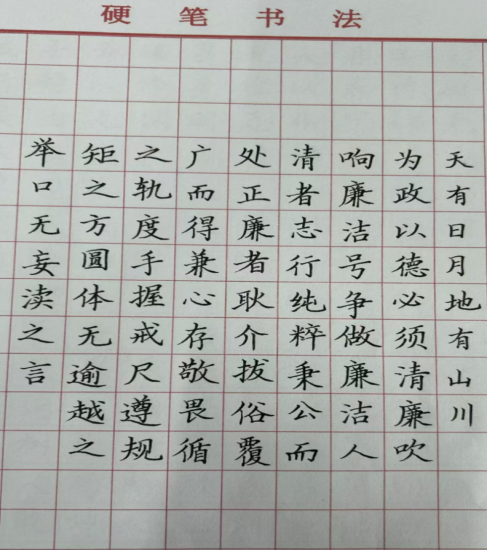 硬笔书法
天有日月地有山川
为政以德必须清廉吹
响廉洁号争做廉洁人
清者志行纯粹秉公而
处正廉者耿介拔俗覆
广而得兼心存敬畏循
之轨度手握戒尺遵规
矩之方圆体无逾越之
举口无妄渎之言